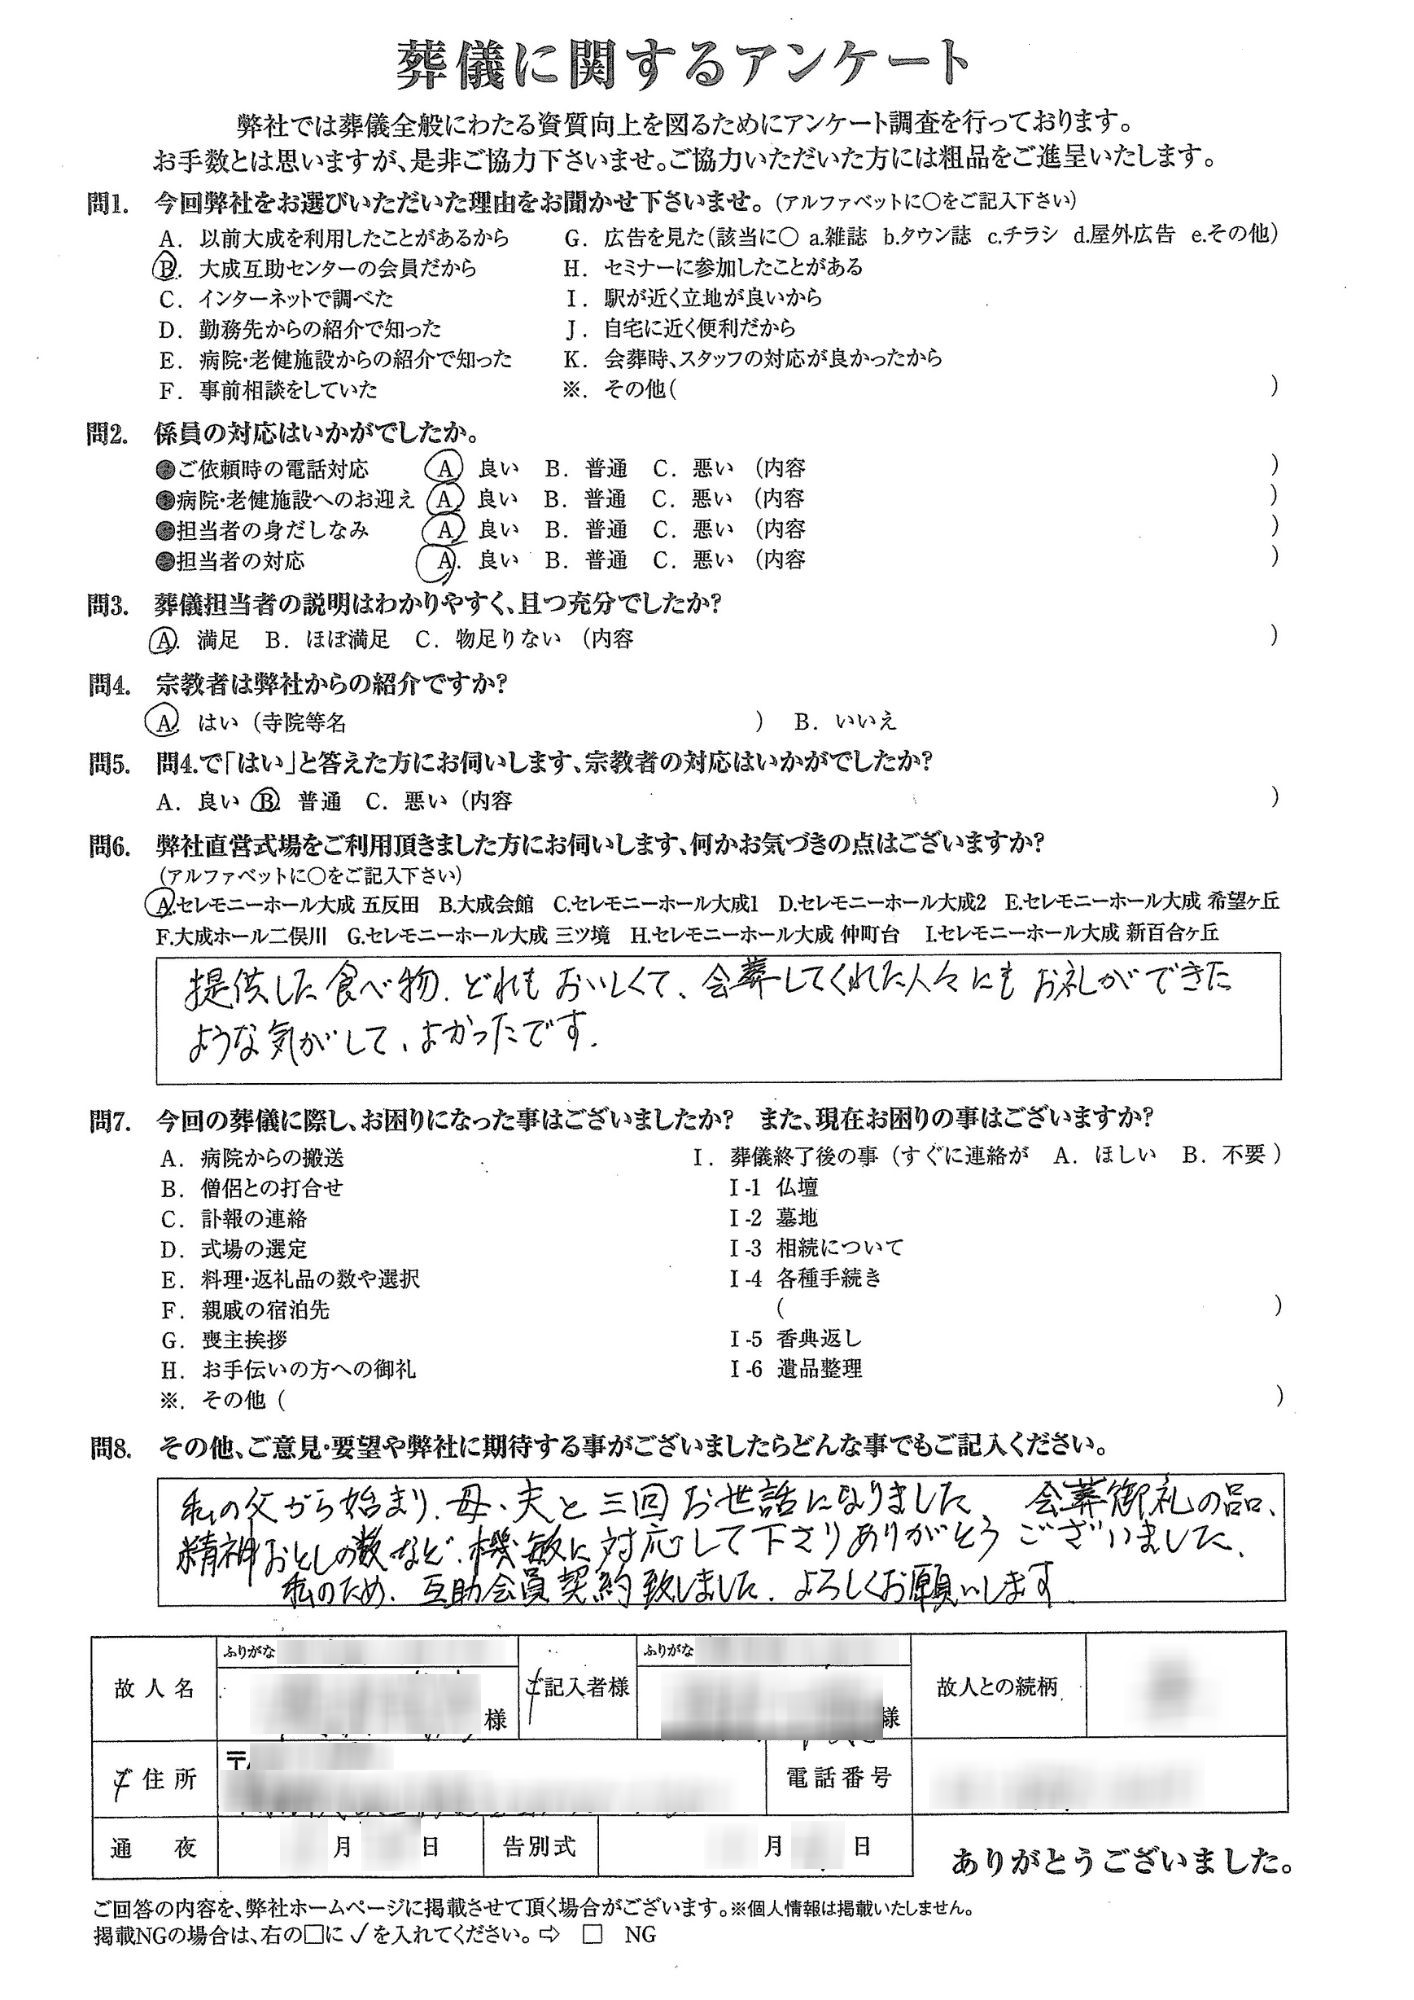 葬儀に関するアンケート
弊社では葬儀全般にわたる資質向上を図るためにアンケート調査を行っております。
お手数とは思いますが、是非ご協力下さいませ。ご協力いただいた方には粗品をご進呈いたします。
問1. 今回弊社をお選びいただいた理由をお聞かせ下さいませ。(アルファベットに〇をご記入下さい)
A. 以前大成を利用したことがあるから G. 広告を見た(該当に〇 a.雑誌 b.タウン誌 c.チラシ d.屋外広告 e.その他)
B. 大成互助センターの会員だから H. セミナーに参加したことがある
C. インターネットで調べた I. 駅が近く立地が良いから
D. 勤務先からの紹介で知った J. 自宅に近く便利だから
E. 病院・老健施設からの紹介で知った K. 会葬時、スタッフの対応が良かったから
F. 事前相談をしていた ※. その他( )
問2. 係員の対応はいかがでしたか。
●ご依頼時の電話対応 A 良い B. 普通 C. 悪い (内容 )
●病院・老健施設へのお迎え A 良い B. 普通 C. 悪い (内容 )
●担当者の身だしなみ A 良い B. 普通 C. 悪い (内容 )
●担当者の対応 A. 良い B. 普通 C. 悪い (内容 )
問3. 葬儀担当者の説明はわかりやすく、且つ充分でしたか?
A. 満足 B. ほぼ満足 C. 物足りない (内容 )
問4. 宗教者は弊社からの紹介ですか?
A. はい (寺院等名 ) B. いいえ
問5. 問4.で「はい」と答えた方にお伺いします、宗教者の対応はいかがでしたか?
A. 良い B. 普通 C. 悪い (内容 )
問6. 弊社直営式場をご利用頂きました方にお伺いします、何かお気づきの点はございますか?
(アルファベットに〇をご記入下さい)
A.セレモニーホール大成 五反田 B.大成会館 C.セレモニーホール大成1 D.セレモニーホール大成2 E.セレモニーホール大成 希望ヶ丘
F.大成ホール二俣川 G.セレモニーホール大成 三ツ境 H.セレモニーホール大成 仲町台 I.セレモニーホール大成 新百合ヶ丘
提供した食べ物、どれもおいしくて、会葬してくれた人々にもお礼ができた
ような気がして、よかったです.
問7. 今回の葬儀に際し、お困りになった事はございましたか? また、現在お困りの事はございますか?
A. 病院からの搬送 I. 葬儀終了後の事 (すぐに連絡が A. ほしい B. 不要 )
B. 僧侶との打合せ I-1 仏壇
C. 訃報の連絡 I-2 墓地
D. 式場の選定 I-3 相続について
E. 料理・返礼品の数や選択 I-4 各種手続き
F. 親戚の宿泊先 ( )
G. 喪主挨拶 I-5 香典返し
H. お手伝いの方への御礼 I-6 遺品整理
※. その他 ( )
問8. その他、ご意見・要望や弊社に期待する事がございましたらどんな事でもご記入ください。
私の父から始まり、母、夫と三回お世話になりました、 会葬御礼の品、
精神おとしの数など、機敏に対応して下さりありがとうございました、
私のため、互助会員契約致しました、よろしくお願いします
ふりがな ふりがな
故人名 様 ご記入者様 様 故人との続柄
ご住所 〒 電話番号
通 夜 月 日 告別式 月 日
ありがとうございました。
ご回答の内容を、弊社ホームページに掲載させて頂く場合がございます。※個人情報は掲載いたしません。
掲載NGの場合は、右の□に✓を入れてください。⇨ □ NG